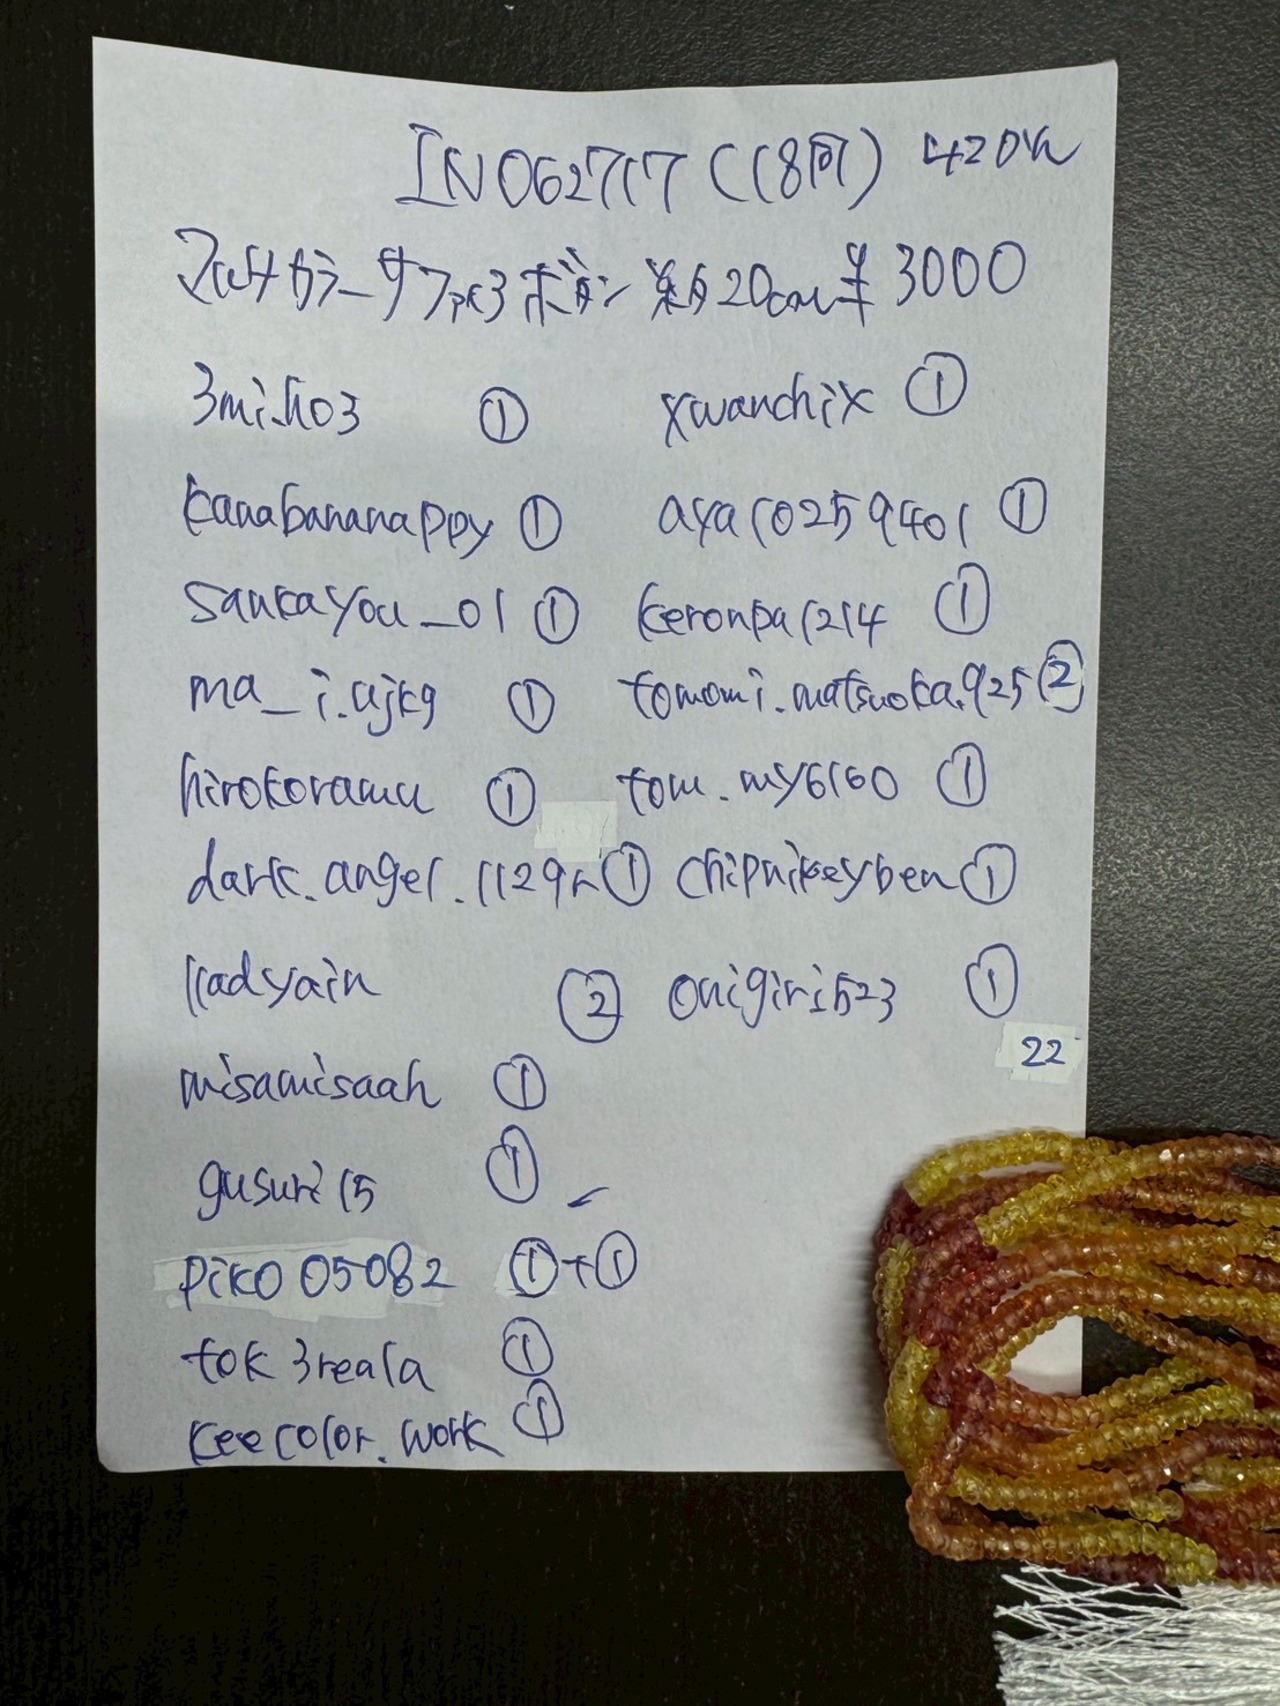 IN062717 (18问) 420in
マルチカラーサファイヤ3 ボタン 約20cm ¥3000
3miho3 ① xwanchix ①
kanabananappy ① aya10259401 ①
sankayou_01 ① keronpa1214 ①
ma_i.ujk9 ① tomomi.matsuoka.925 ②
hirokoramu ① tom.my6160 ①
dark.angel.1129r ① chipnikeyben ①
lladyain ② onigiri523 ①
22
misamisaah ①
gusuri15 ①
piko05082 ①+①
tok3reala ①
keecolor.work ①